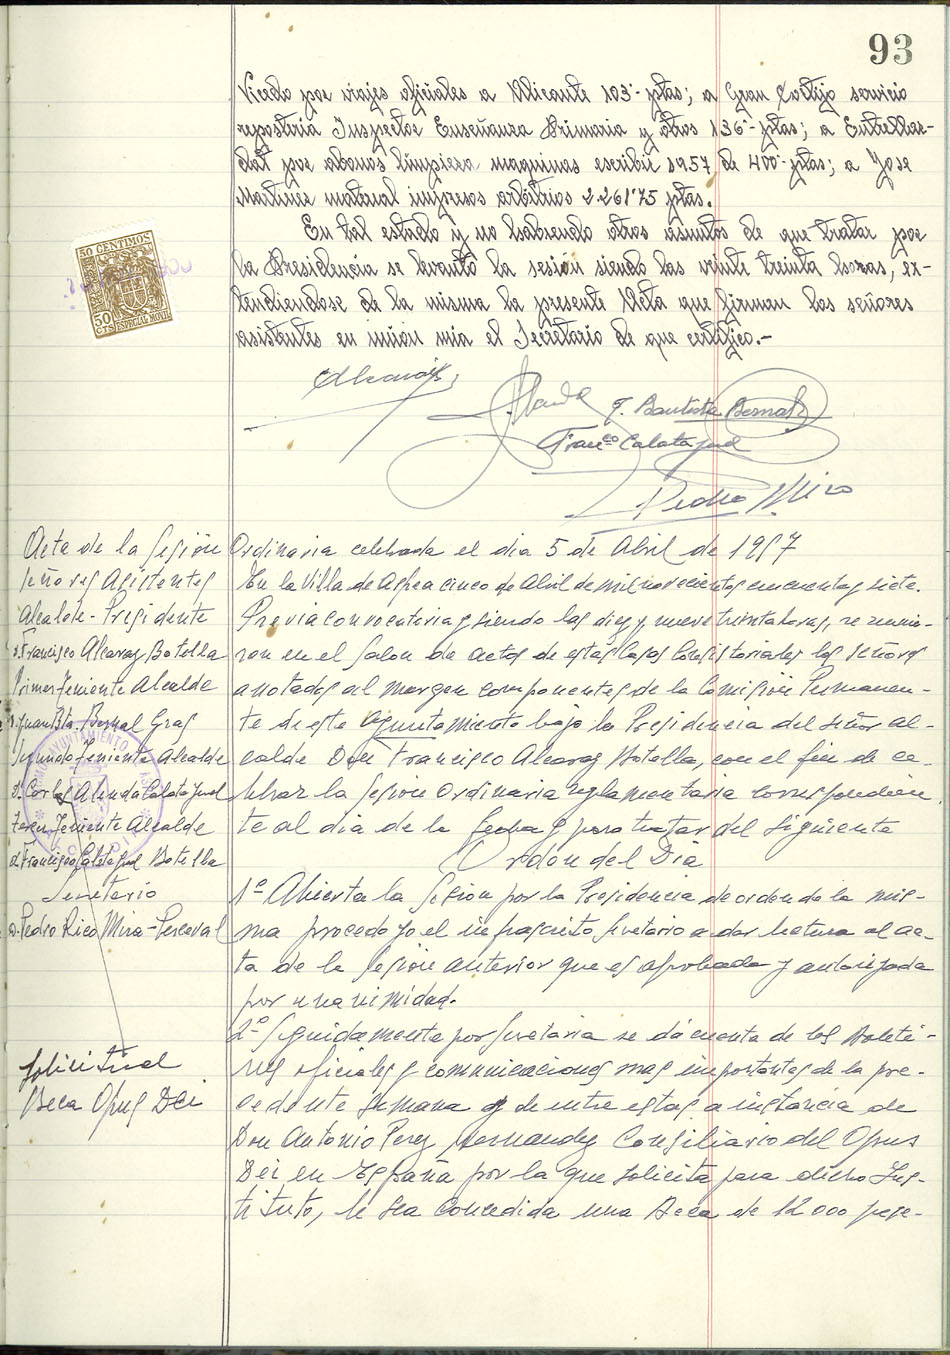 93
Vicedo por viajes oficiales a Alicante 103'- ptas; a Gran Cortijo servicio
reposteria Inspector Enseñanza Primaria y otros 136'- ptas; a
por abonos limpieza maquinas escribir 1957 de 400'- ptas; a Jose
Martinez material impresos arbitrios 2.261'75 ptas.
En tal estado y no habiendo otros asuntos de que tratar por
la Presidencia se levantó la sesion siendo las veinte treinta horas, ex-
tendiendose de la misma la presente Acta que firman los señores
asistentes en unión mia el Secretario de que certifico.-
50 CENTIMOS
50 CTS ESPECIAL MOVIL
J. Bautista Bernal
Franco Calatayud
Pedro Mira
Acta de la Sesión Ordinaria celebrada el dia 5 de Abril de 1957
Señores Asistentes
Alcalde-Presidente
D. Francisco Alcaraz Botella
Primer Teniente Alcalde
D. Juan Bta Bernal Gras
Segundo Teniente Alcalde
D. Carlos Alenda Calatayud
Tercer Teniente Alcalde
D. Francisco Calatayud Botella
Secretario
D. Pedro Rico Mira-Perceval
En la Villa de Aspe a cinco de Abril de mil novecientos cincuenta y siete.
Previa convocatoria y siendo las diez y nueve treinta horas, se reunie-
ron en el Salon de actos de estas Casas Consistoriales los señores
anotados al margen componentes de la Comisión Permanen-
te de este Ayuntamiento bajo la Presidencia del señor Al-
calde Don Francisco Alcaraz Botella, con el fin de ce-
lebrar la Sesion Ordinaria reglamentaria correspondien-
te al dia de la fecha y para tratar del siguiente
Orden del Dia
1º Abierta la Sesion por la Presidencia de orden de la mis-
ma procedo yo el infrascrito Secretario a dar lectura al ac-
ta de la sesion anterior que es aprobada y autorizada
por unanimidad.
Solicitud
Beca Opus Dei
2º Seguidamente por Secretaria se dá cuenta de los Boleti-
nes oficiales y comunicaciones mas importantes de la pre-
cedente semana y de entre estas a instancia de
Don Antonio Perez Hernandez Consiliario del Opus
Dei en España por la que solicita para dicho Ins-
tituto, le sea concedida una Beca de 12.000 pese-